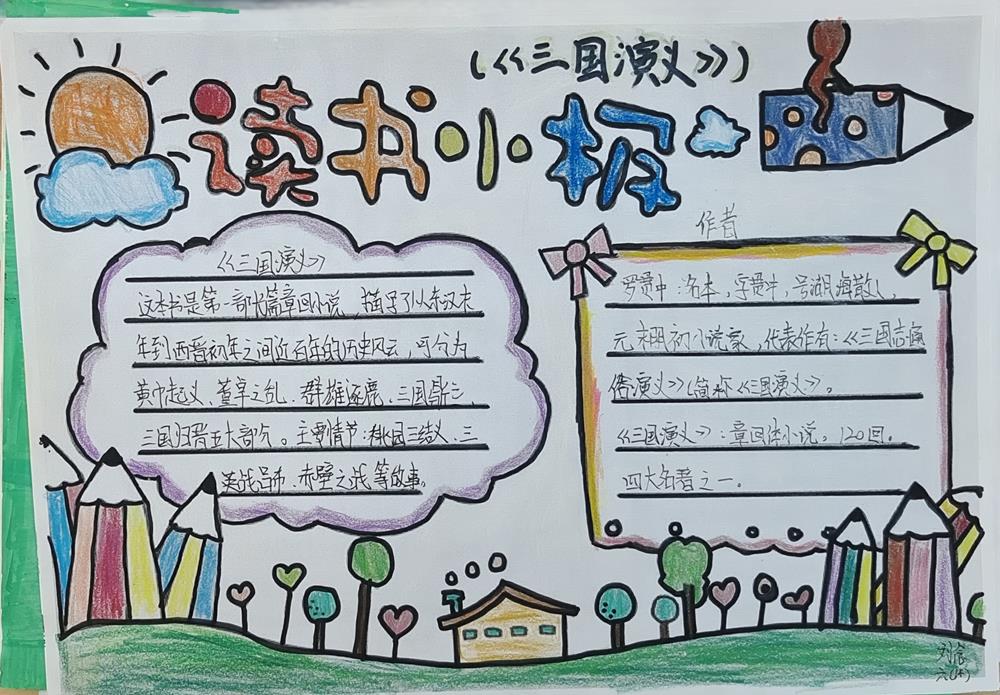 (《三国演义》)
读书小报
《三国演义》
这本书是第一部长篇章回小说，描写了从东汉末
年到西晋初年之间近百年的历史风云，可分为
黄巾起义、董卓之乱、群雄逐鹿、三国鼎立、
三国归晋五大部分。主要情节：桃园三结义、三
英战吕布、赤壁之战等故事。
作者
罗贯中：名本，字贯中，号湖海散人，
元末明初小说家，代表作有：《三国志通
俗演义》（简称《三国演义》）。
《三国演义》：章回体小说。120回。
四大名著之一。